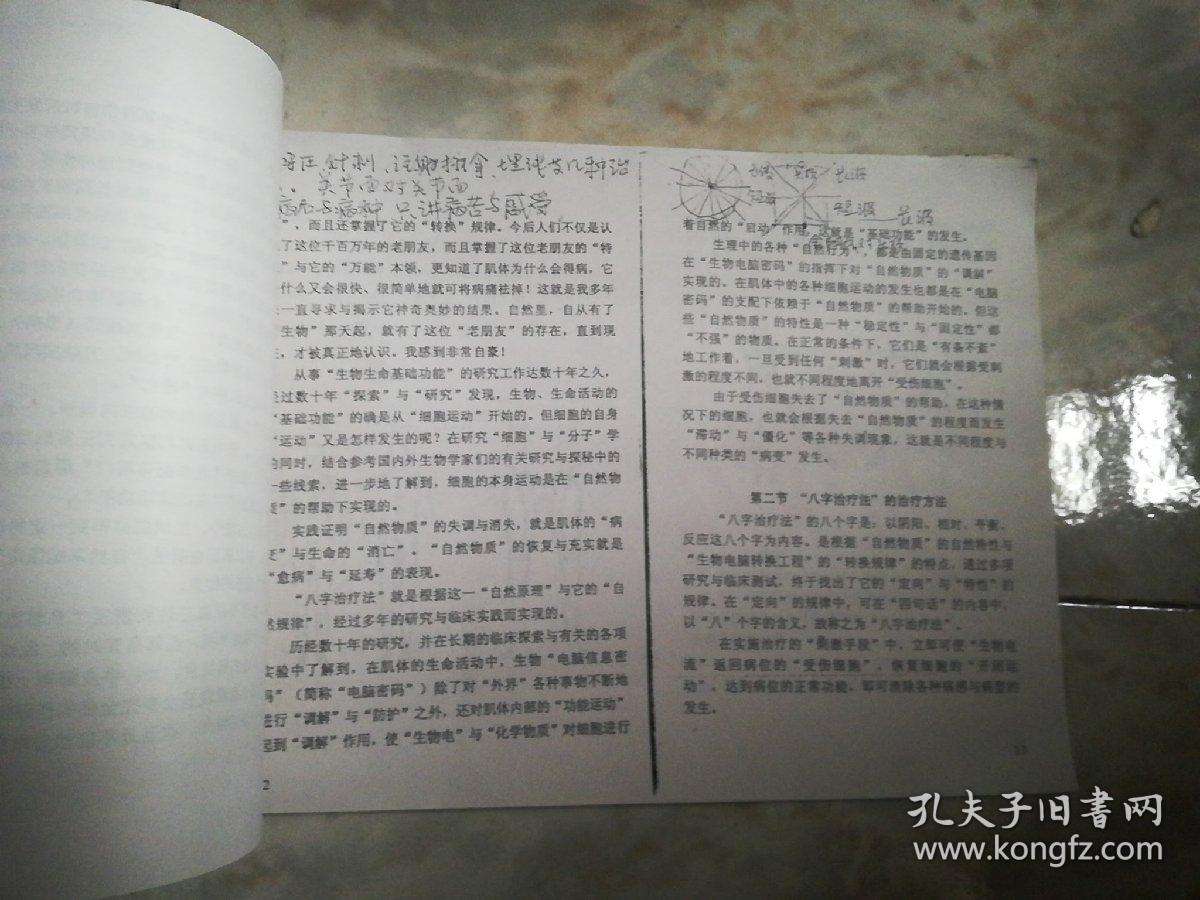 针刺、注射
关节面对关节面
病后与病种 只讲病苦与感受
”，而且还掌握了它的“转换”规律。今后人们不仅是认
了这位千百万年的老朋友，而且掌握了这位老朋友的“特
”与它的“万能”本领，更知道了肌体为什么会得病，它
什么又会很快、很简单地就可将病痛祛掉！这就是我多年
一直寻求与揭示它神奇奥妙的结果。自然里，自从有了
生物”那天起，就有了这位“老朋友”的存在，直到现
，才被真正地认识。我感到非常自豪！
从事“生物生命基础功能”的研究工作达数十年之久，
经过数十年“探索”与“研究”发现，生物、生命活动的
“基础功能”的确是从“细胞运动”开始的。但细胞的自身
“运动”又是怎样发生的呢？在研究“细胞”与“分子”学
的同时，结合参考国内外生物学家们的有关研究与探秘中的
一些线索，进一步地了解到，细胞的本身运动是在“自然物
质”的帮助下实现的。
实践证明“自然物质”的失调与消失，就是肌体的“病
变”与生命的“消亡”。“自然物质”的恢复与充实就是
“愈病”与“延寿”的表现。
“八字治疗法”就是根据这一“自然原理”与它的“自
然规律”，经过多年的研究与临床实践而实现的。
历经数十年的研究，并在长期的临床探索与有关的各项
实验中了解到，在肌体的生命活动中，生物“电脑信息密
码”（简称“电脑密码”）除了对“外界”各种事物不断地
进行“调解”与“防护”之外，还对肌体内部的“功能运动”
起到“调解”作用，使“生物电”与“化学物质”对细胞进行
2
短波 长波
着自然的“启动”作用，这就是“基础功能”的发生。
生理中的各种“自然行为”，都是由固定的遗传基因
在“生物电脑密码”的指挥下对“自然物质”的“调解”
实现的。在肌体中的各种细胞运动的发生也都是在“电脑
密码”的支配下依赖于“自然物质”的帮助开始的。但这
些“自然物质”的特性是一种“稳定性”与“固定性”都
“不强”的物质。在正常的条件下，它们是“有条不紊”
地工作着，一旦受到任何“刺激”时，它们就会根据受刺
激的程度不同，也就不同程度地离开“受伤细胞”。
由于受伤细胞失去了“自然物质”的帮助，在这种情
况下的细胞，也就会根据失去“自然物质”的程度而发生
“滞动”与“僵化”等各种失调现象，这就是不同程度与
不同种类的“病变”发生。
第二节 “八字治疗法”的治疗方法
“八字治疗法”的八个字是：以阴阳、相对、平衡、
反应这八个字为内容。是根据“自然物质”的自然特性与
“生物电脑转换工程”的“转换规律”的特点，通过多项
研究与临床测试，终于找出了它的“定向”与“特性”的
规律。在“定向”的规律中，可在“四句话”的内容中，
以“八”个字的含义，故称之为“八字治疗法”。
在实施治疗的“刺激手段”中，立即可使“生物电
流”返回病位的“受伤细胞”，恢复细胞的“开展运
动”，达到病位的正常功能，即可消除各种病感与病型的
发生。
13
孔夫子旧書网
www.kongfz.com